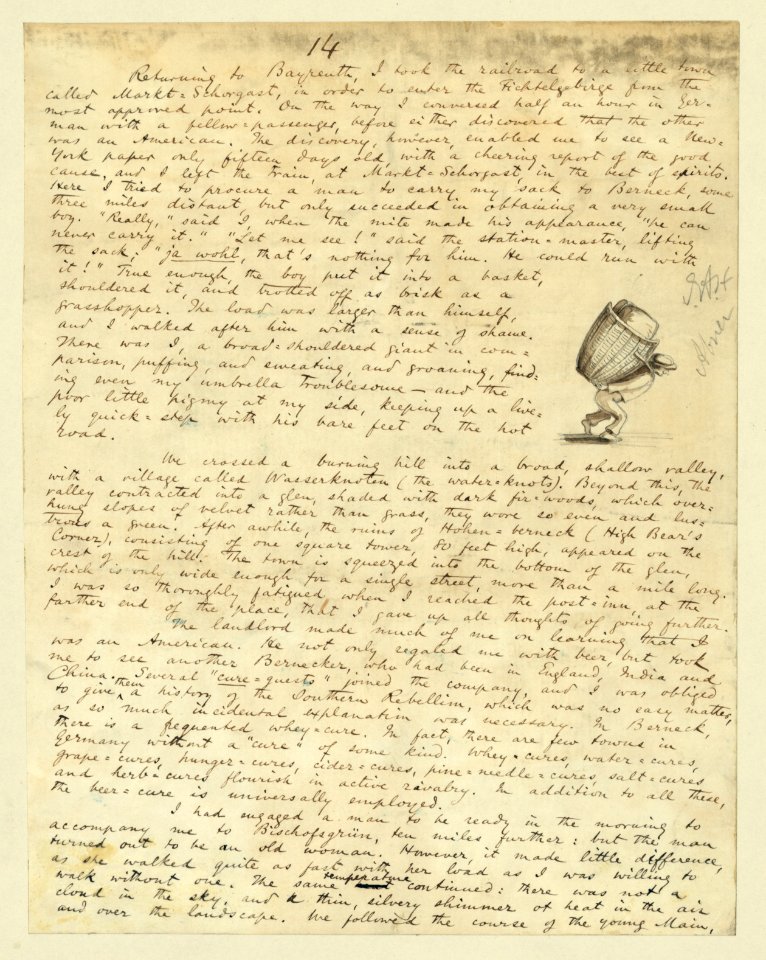 14
Returning to Bayreuth, I took the railroad to a little town
called Markt=Schorgast, in order to enter the Fichtelgebirge from the
most approved point. On the way I conversed half an hour in Ger=
man with a fellow=passenger, before either discovered that the other
was an American. The discovery, however, enabled me to see a New=
York paper only fifteen days old, with a cheering report of the good
cause, and I left the train, at Markt=Schorgast, in the best of spirits.
Here I tried to procure a man to carry my sack to Berneck, some
three miles distant but only succeeded in obtaining a very small
boy. "Really," said I, when the mite made his appearance, "he can
never carry it." "Let me see!" said the station=master, lifting
the sack; "ja wohl, that's nothing for him. He could run with
it!" True enough, the boy put it into a basket,
shouldered it and trotted off as brisk as a
grasshopper. The load was larger than himself,
and I walked after him with a sense of shame.
There was I, a broad=shouldered giant in com=
parison, puffing, and sweating, and groaning, find=
ing even my umbrella troublesome — and the
poor little pigmy at my side, keeping up a live=
ly quick=step with his bare feet on the hot
road.
We crossed a burning hill into a broad, shallow valley,
with a village called Wasserknoten (the water=knots). Beyond this, the
valley contracted into a glen, shaded with dark fir=woods, which over=
hung slopes of velvet rather than grass, they were so even and lus=
trous a green. After awhile, the ruins of Hohen=berneck (High Bear's
Corner), consisting of one square tower, 80 feet high, appeared on the
crest of the hill. The town is squeezed into the bottom of the glen,
which is only wide enough for a single street, more than a mile long.
I was so thoroughly fatigued when I reached the post=inn, at the
farther end of the place, that I gave up all thoughts of going further.
The landlord made much of me on learning that I
was an American. He not only regaled me with beer, but took
me to see another Bernecker, who had been in England, India and
China. Several "cure=guests" joined the company, and I was obliged
to give them a history of the Southern Rebellion, which was no easy matter,
as so much incidental explanation was necessary. In Berneck,
there is a frequented whey=cure. In fact, there are few towns in
Germany without a "cure" of some kind. Whey=cures, water=cures,
grape=cures, hunger=cures, cider=cures, pine=needle=cures, salt=cures
and herb=cures flourish in active rivalry. In addition to all these,
the beer=cure is universally employed.
I had engaged a man to be ready in the morning to
accompany me to Bischofsgrün, ten miles further: but the man
turned out to be an old woman. However, it made little difference,
as she walked quite as fast with her load as I was willing to
walk without one. The same temperature continued: there was not a
cloud in the sky, and a thin, silvery shimmer of heat in the air
and over the landscape. We followed the course of the young Main,